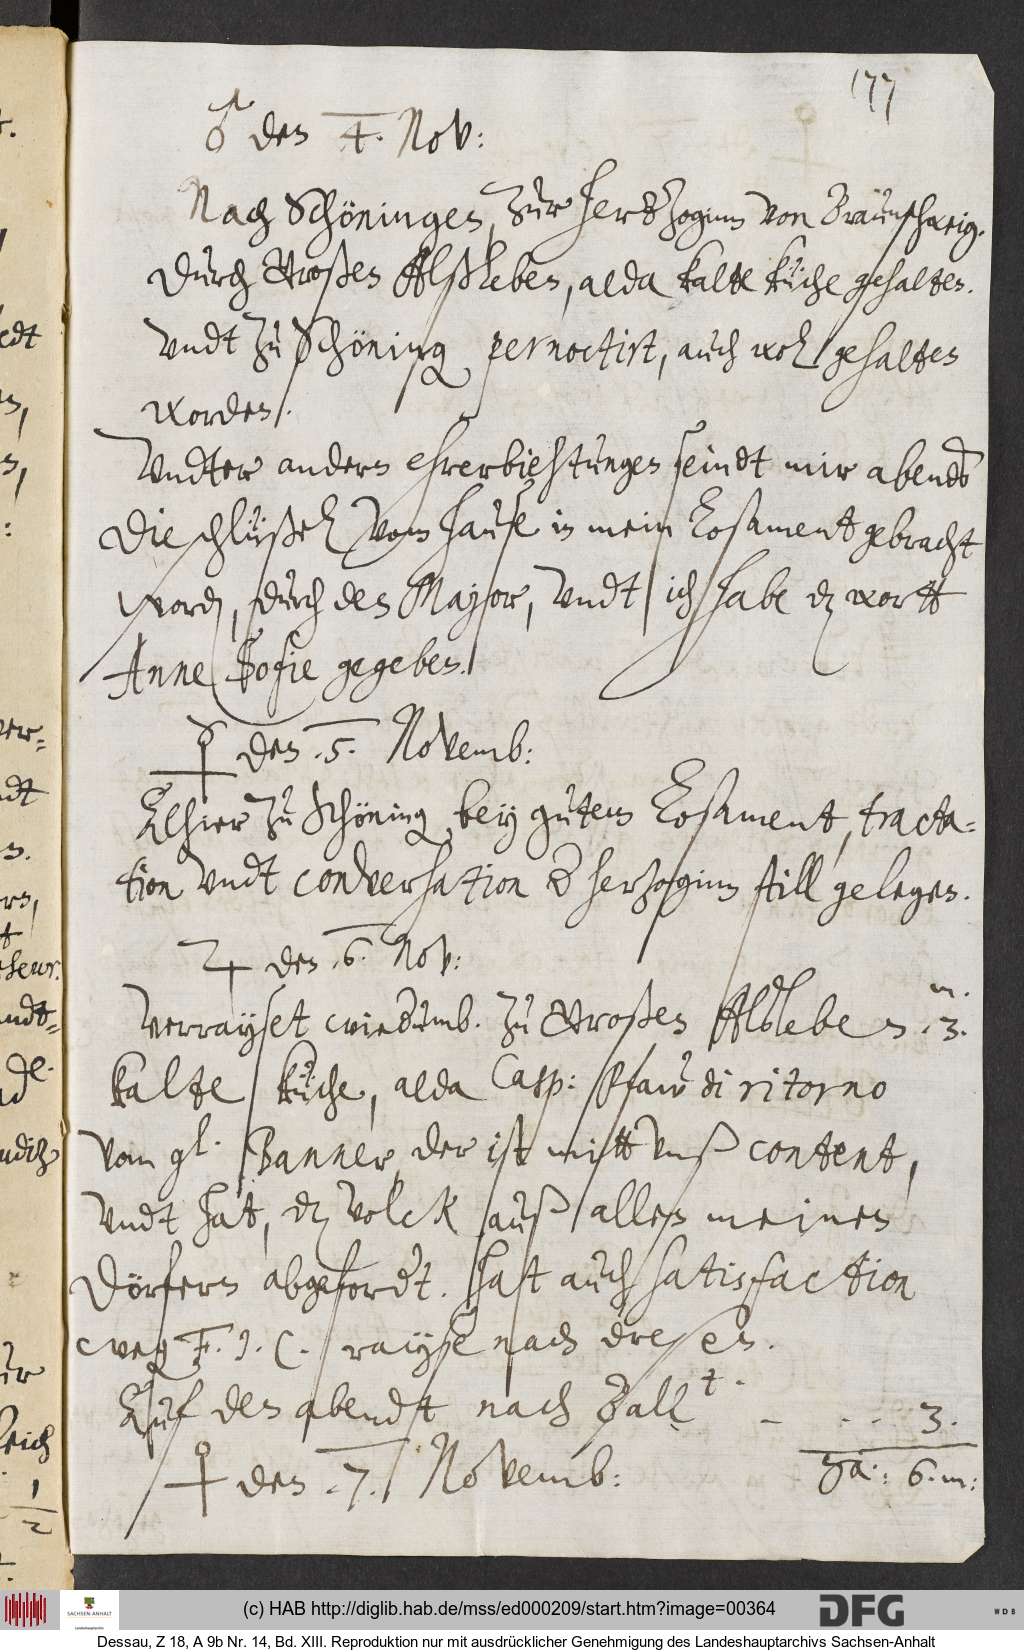 177
♂ den 4. Nov:
Nach Schöningen, zur Hertzoginn von Braunschweig.
durch Großen Alßleben, alda kalte küche gehalten.
vndt zu Schöning pernoctirt, auch wol gehalten
worden.
Vndter andern ehrerbiehtungen seindt mir abends
die schlüßel vom Hause in mein Losament gebracht
word, durch den Major, vndt ich habe dz wortt
Anne Sofie gegeben.
☿ den .5. Novemb:
Alhier zu Schöning, bey gutem Losament, tracta-
tion vndt conversation d herzoginn still gelegen.
♃ den .6. Nov:
m.
Verrayset wiedumb. zu Großen Alßleben .3.
kalte küche, alda Casp: Pfau di ritorno
vom gl. Banner, der ist mitt vnß content,
vndt hat, dz volck auß allen meinen
Dörfern abgefordt. Hat auch satisfaction
weg F. J. C. rayse nach
Auf den abendt nach Ball t. - . . . 3.
♀ den .7. Novemb:
6. m:
(c) HAB http://diglib.hab.de/mss/ed000209/start.htm?image=00364
SACHSEN-ANHALT
DFG
WDB
Dessau, Z 18, A 9b Nr. 14, Bd. XIII. Reproduktion nur mit ausdrücklicher Genehmigung des Landeshauptarchivs Sachsen-Anhalt